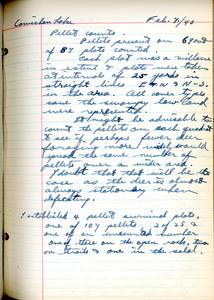 Cowichan Lake Feb. 4/40
Pellet counts.
Pellets present on 69 out
of 87 plots counted.
Each plot was a milliacre
in extent & plots were taken
at interval of 25 yards in
straight lines E & W & N - S.
in the area. All in a type
same the swampy low land
were represented.
It might be advisable to
count the pellets on each quadrat
to see if perhaps fewer deer
foraging more widely would
spread the same number of
pellets over a wider area.
I doubt that this will be the
case as the deer is almost
always stationary when
defecating.
Established 4 pellet survival plots,
one of 107 pellets 2 of 25 &
one of an uncounted number
one of these on the open rock, two
on trails & one in the salal.